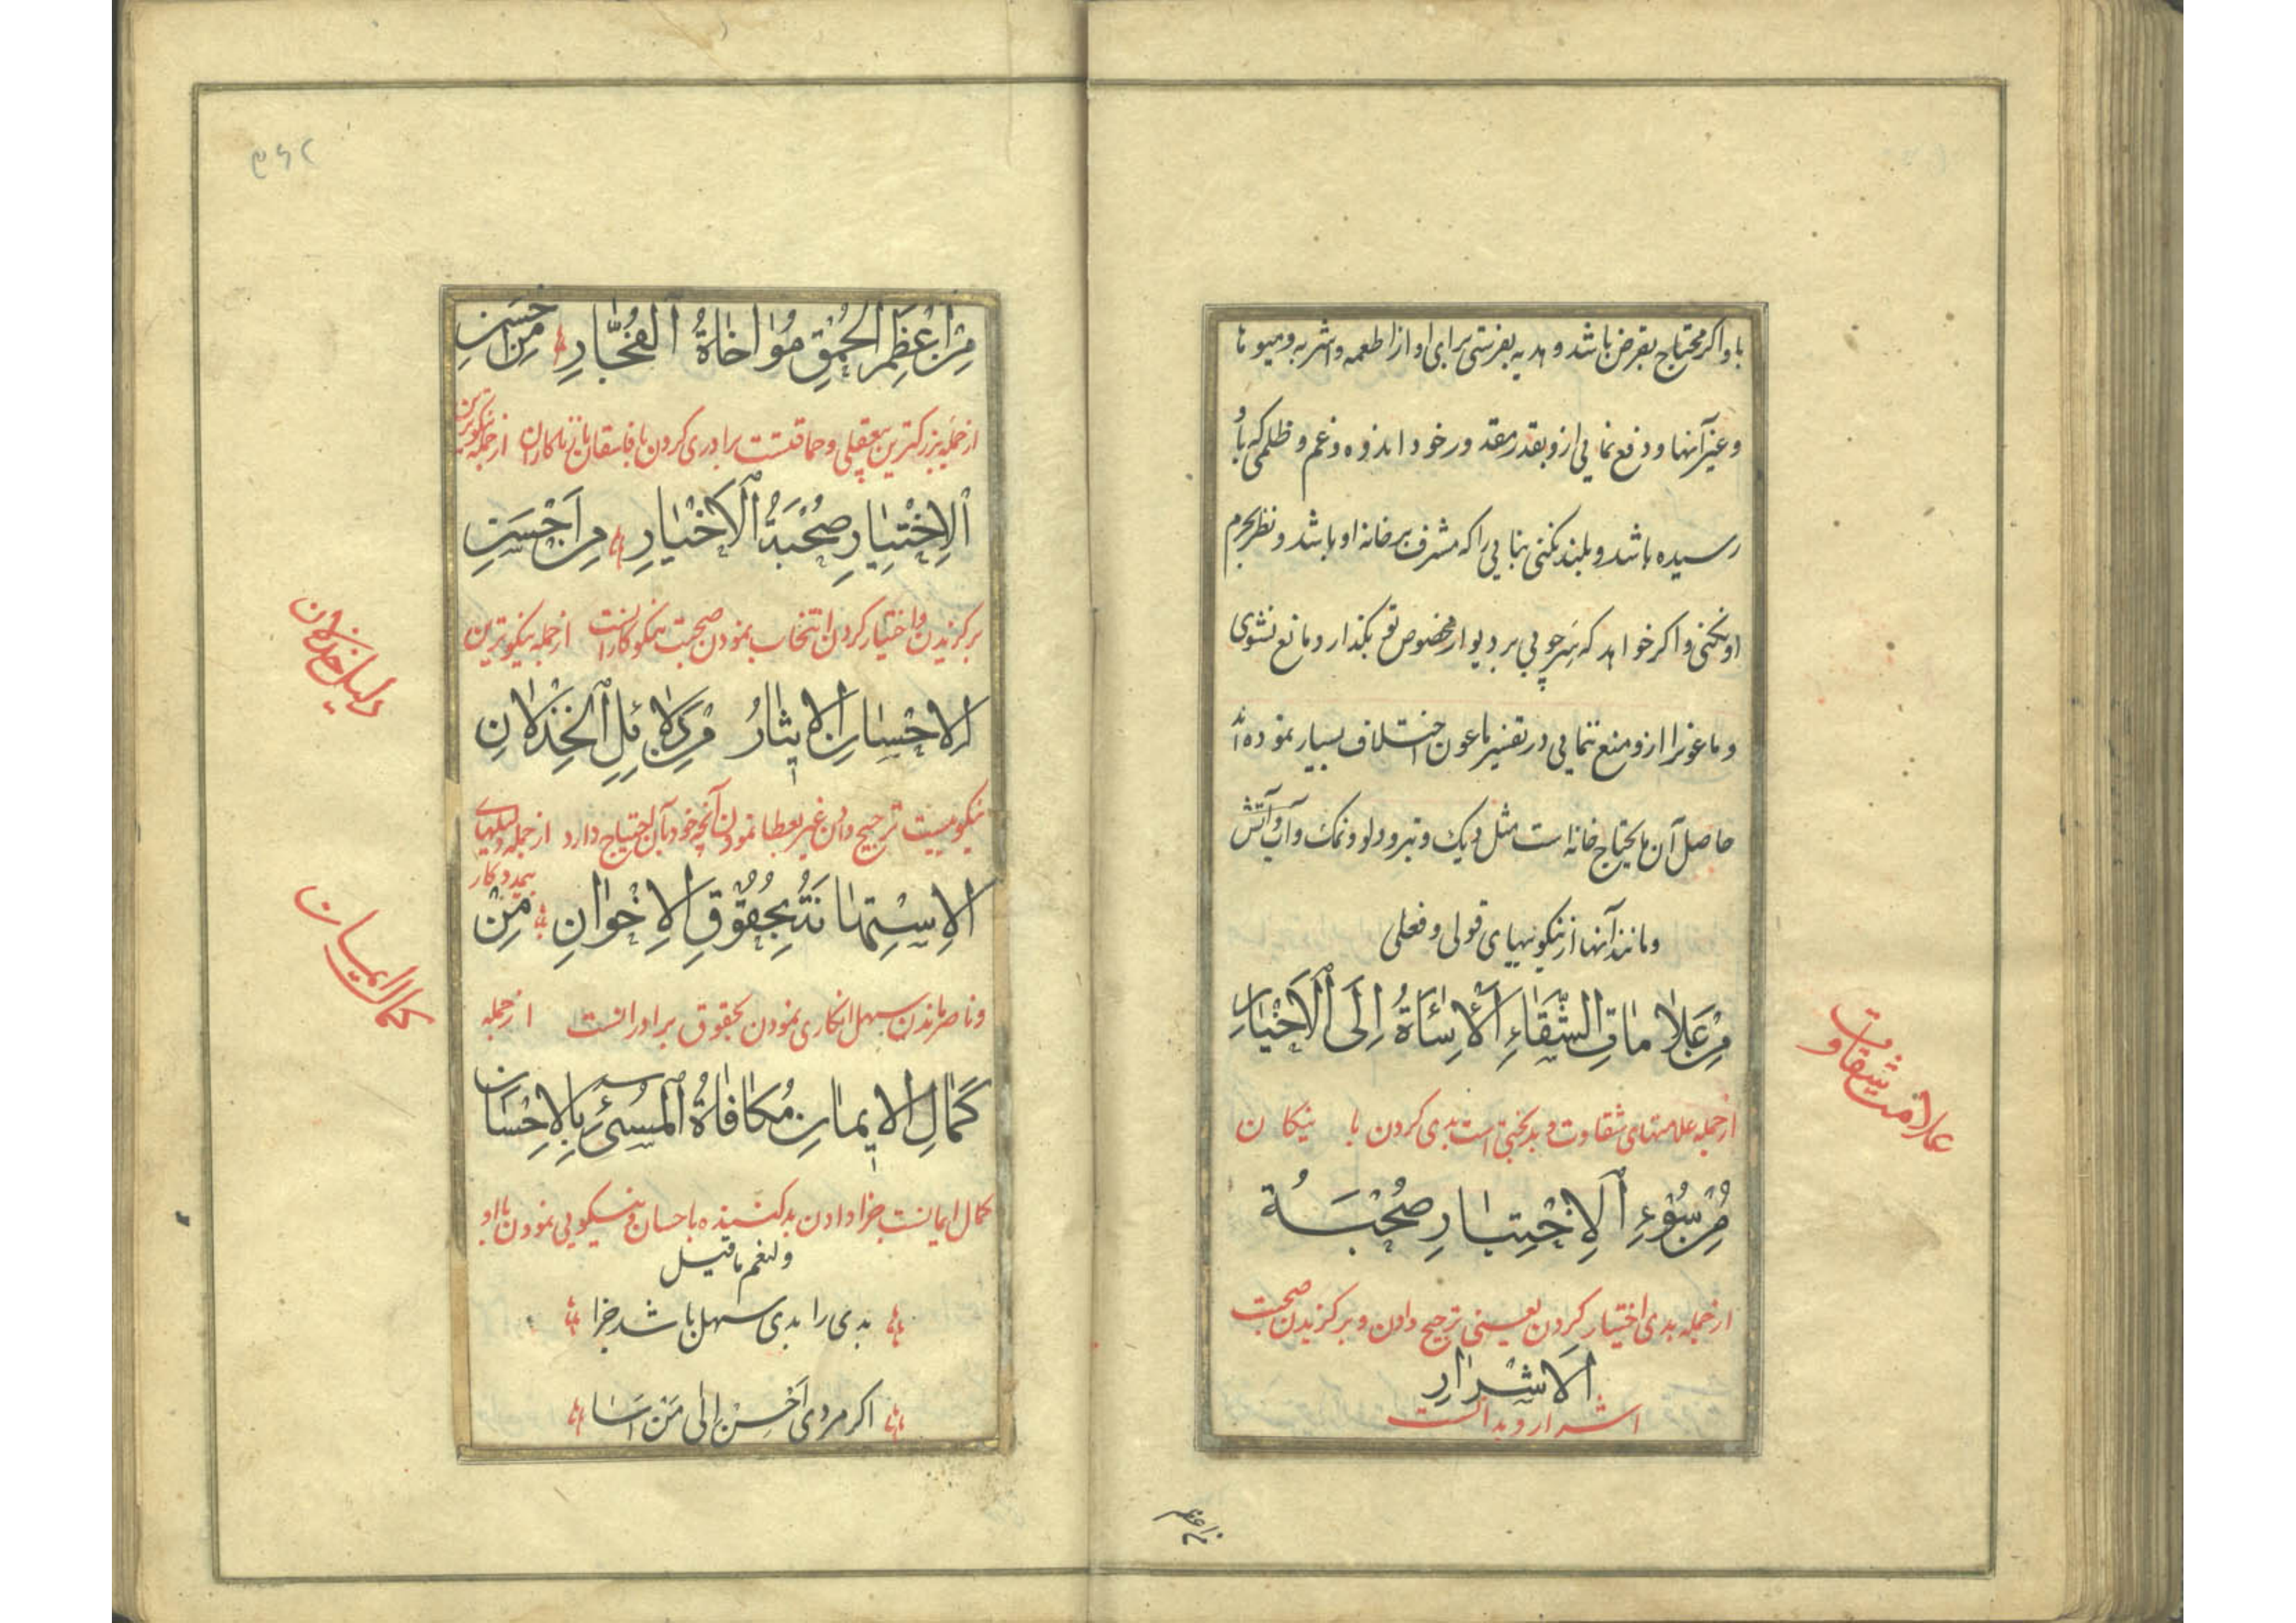 باو اکر محتاج بقرض باشد و هدیه بفرستی برای او از اطعمه و اشربه و میوها
و غیر آنها و دفع نمایی ازو بقدر مقدور خود اندوه و غم و ظلمی که باو
رسیده باشد و بلند نکنی بنایی را که مشرف بر خانه او باشد و نظر بحرم
او نکنی و اکر خواهد که سر چوبی بر دیوار مخصوص تو بکذارد مانع نشوی
و ماعونرا ازو منع ننمایی در تفسیر ماعون اختلاف بسیار نموده اند
حاصل آن مایحتاج خانه است مثل دیک و تبر و دلو و نمک و آب و آتش
و مانند آنها از نیکوییهای قولی و فعلی
مِنْ عَلاماتِ الشَّقاءِ اَلْاِسائَةُ اِلَی الْاَخْیارِ
از جمله علامتهای شقاوت و بدبختی است بدی کردن با نیکان
علامت شقاوت
مِنْ سُوْءِ الْاِخْتِیارِ صُحْبَةُ
از جمله بدی اختیار کردن یعنی ترجیح دادن و برکزیدن صحبت
الْاَشْرارِ
اشرار و بدانست
من اعظم
۲۶۹
مِنْ اَعْظَمِ الْحُمْقِ مُواخاةُ الْفُجّارِ مِنْ اَحْسَنِ
از جمله بزرکترین بیعقلی و حماقتست برادری کردن با فاسقان با زناکاران از جمله نیکوترین
اَلْاِخْتِیارِ صُحْبَةُ الْاَخْیارِ مِنْ اَحْسَنِ
برکزیدن و اختیار کردن انتخاب نمودن صحبت نیکوکارانست از جمله نیکوترین
الْاِحْسانِ الْایثارُ مِنْ دَلائِلِ الْخِذْلانِ
دلیل خذلان
نیکوییست ترجیح دادن غیر بعطا نمودن آنچه خود بآن احتیاج دارد از جمله دلیلهای
بیمددکار
الْاِسْتِهانَةُ بِحُقُوْقِ الْاِخْوانِ مِنْ
و ناصر ماندن سهل انکاری نمودن بحقوق برادرانست از جمله
کمال ایمان
کَمالِ الْایمانِ مُکافاةُ الْمُسِیْءِ بِالْاِحْسانِ
کمال ایمانست جزا دادن بد کننده باحسان و نیکویی نمودن با او
و لنعم ما قیل
بدی را بدی سهل باشد جزا
اکر مردی اَحْسِنْ اِلی مَنْ اَسَا